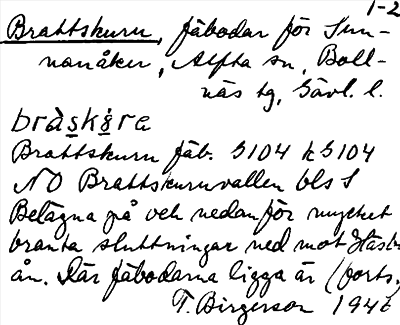 1-2
Brattskuru, fäbodar för Sun-
nanåker, Alfta sn, Boll-
näs tg, Gävl. l.
bràskg̀ra
Brattskuru fäb. S104 k S104
NO Brattskuruvallen bls S
Belägna på och nedanför mycket
branta sluttningar ned mot
ån. Där fäbodarna ligga är (forts.
T. Birgerson 194